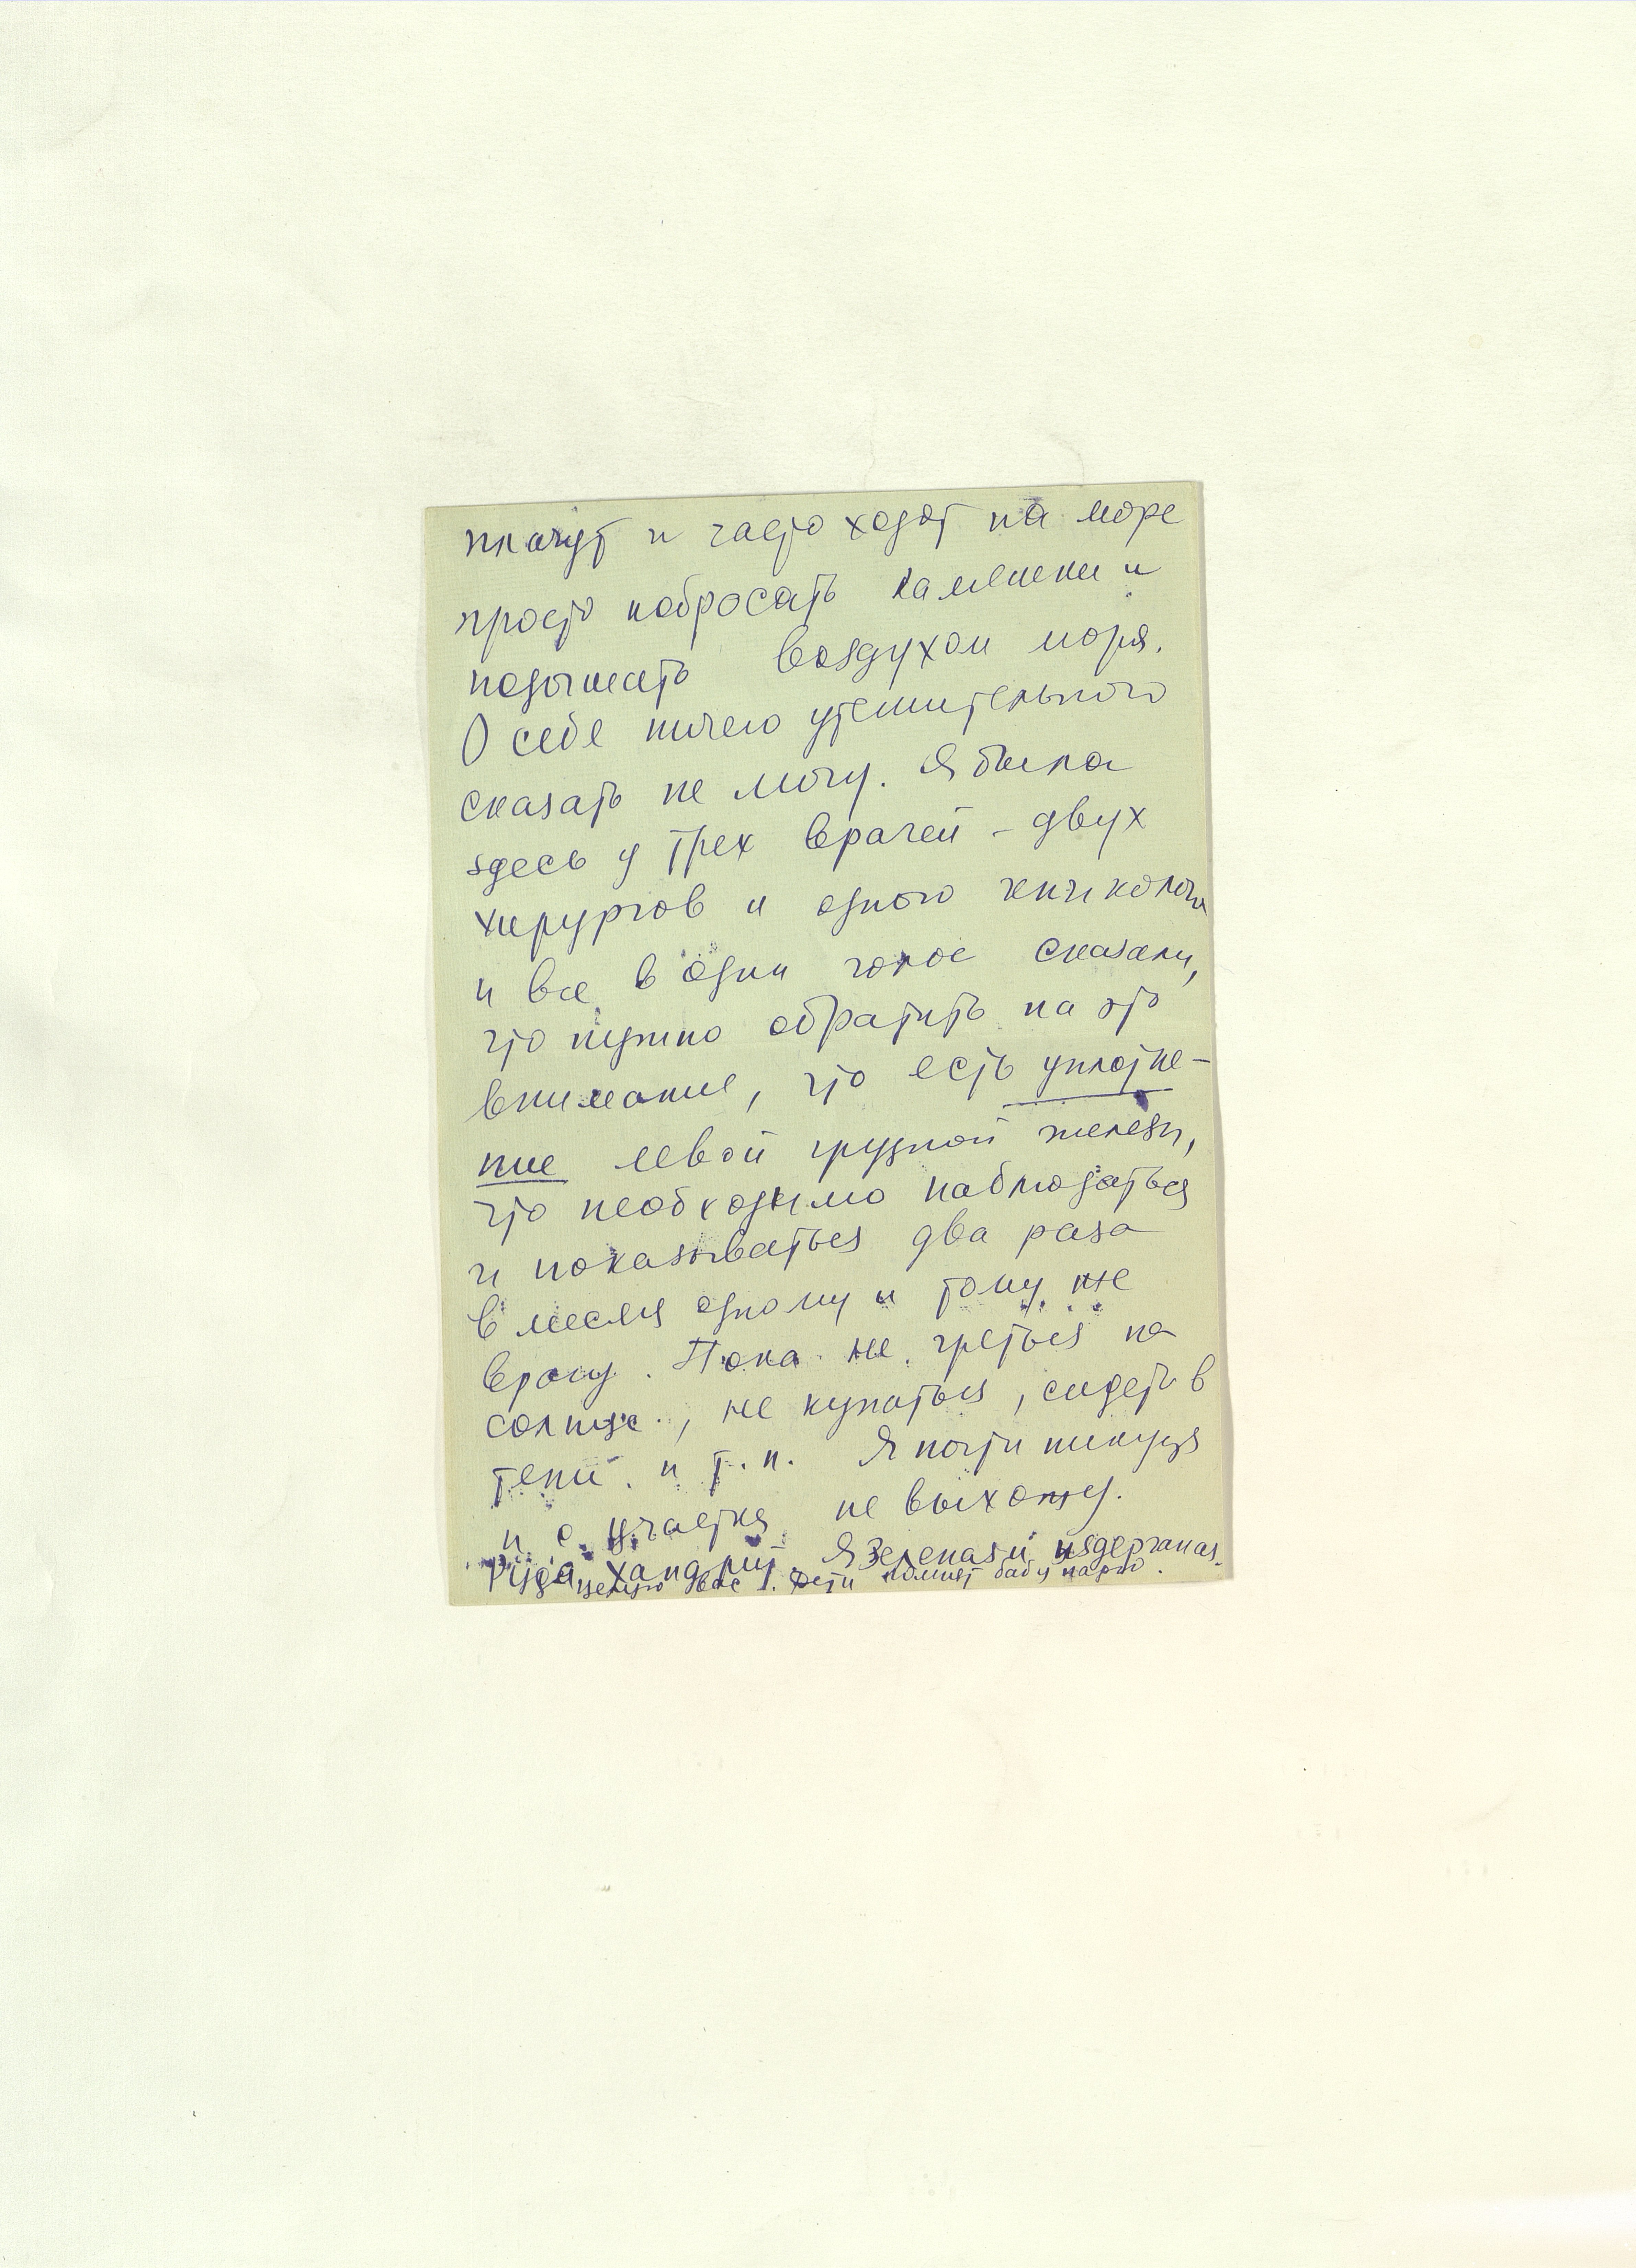 плачут и часто ходят на море
просто побросать камешки и
подышать воздухом моря.
О себе ничего утешительного
сказать не могу. Я была
здесь у трех врачей – двух
хирургов и одного гинеколога
и все в один голос сказали,
что нужно обратить на это
внимание, что есть уплотне-
ние левой грудной железы,
что необходимо наблюдаться
и показываться два раза
в месяц одному и тому же
врачу. Пока не греться на
солнце, не купаться, сидеть в
тени и т.п. Я почти никуда
и с участка не выхожу.
хандрит. Я зеленая и издерганая.
целую Вас. Дети помнят бабу